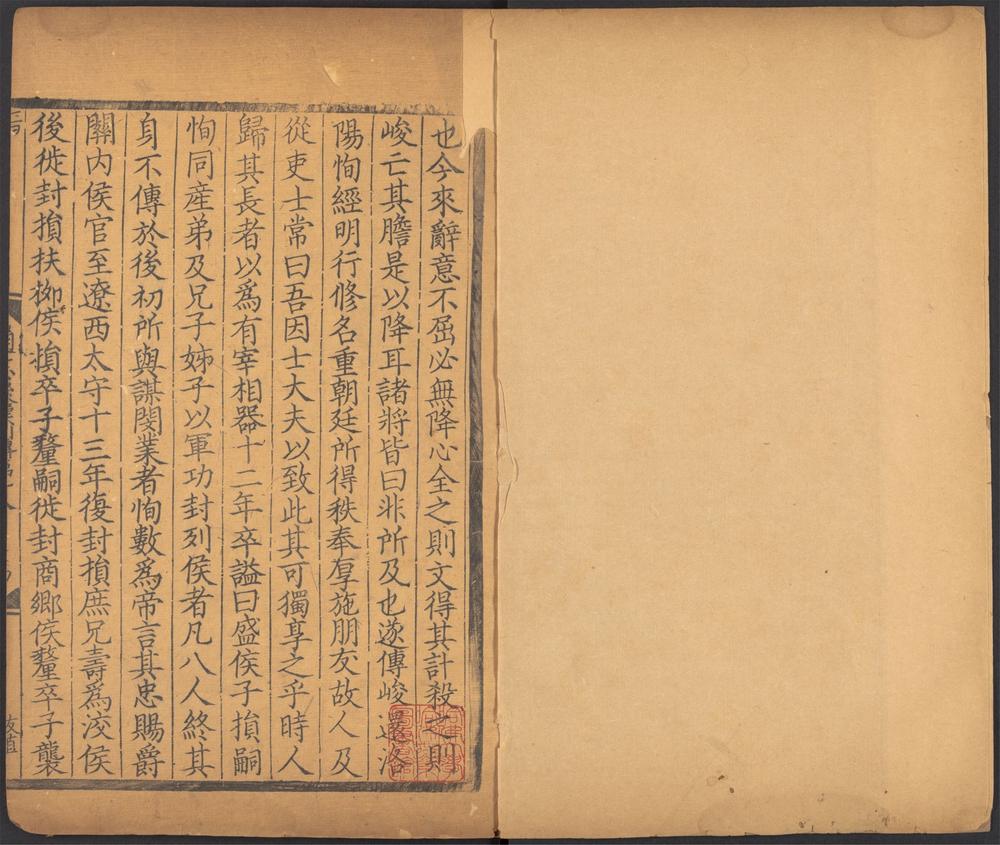 也今來辭意不屈必無降心全之則文得其計殺之則
峻亡其膽是以降耳諸將皆曰非所及也遂傳峻還洛
陽恂經明行修名重朝廷所得秩奉厚施朋友故人及
從吏士常曰吾因士大夫以致此其可獨享之乎時人
歸其長者以爲有宰相器十二年卒謚曰盛侯子損嗣
恂同産弟及兄子姊子以軍功封列侯者凡八人終其
身不傳於後初所與謀閔業者恂數爲帝言其忠賜爵
關内侯官至遼西太守十三年復封損庶兄壽爲洨侯
後徙封損扶栁侯損卒子釐嗣徙封商鄉侯釐卒子襲